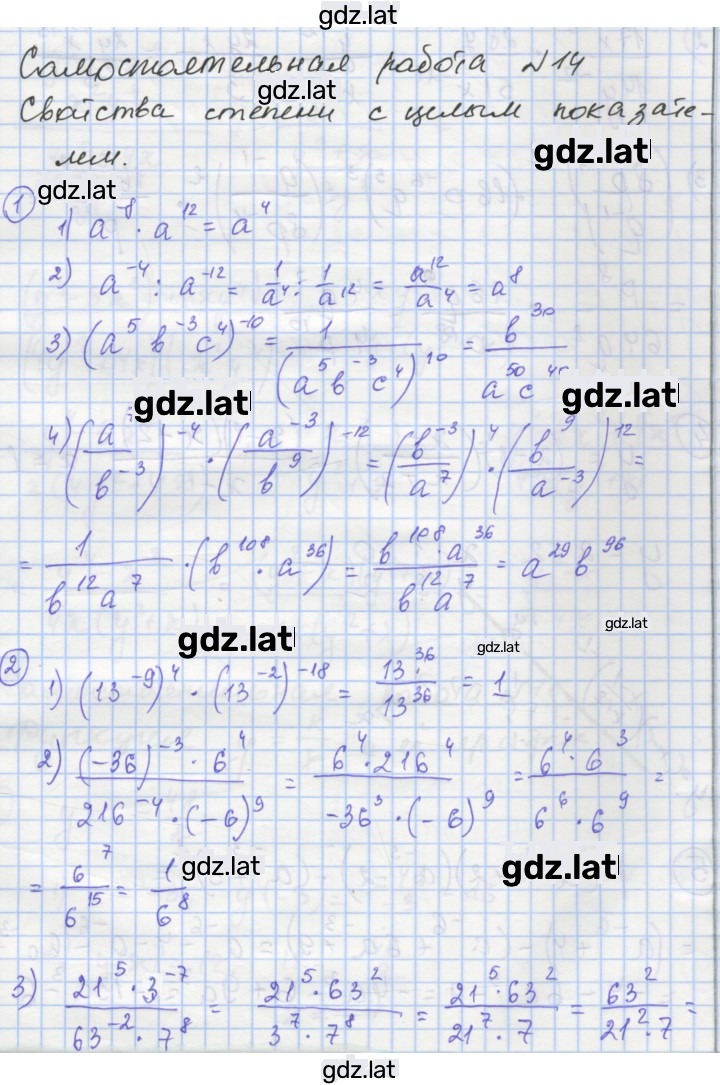 gdz.lat
Самостоятельная работа №14
gdz.lat
Свойства степени с целым показате-
gdz.lat
лем.
gdz.lat
① 1) a^-8 · a^12 = a^4
2) a^-4 : a^-12 = 1/a^4 : 1/a^12 = a^12/a^4 = a^8
3) (a^5 b^-3 c^4)^-10 = 1/(a^5 b^-3 c^4)^10 = b^30/(a^50 c^40)
gdz.lat gdz.lat
4) (a/b^-3)^-4 · (a^-3/b^9)^-12 = (b^-3/a^7)^4 · (b^9/a^-3)^12 =
= 1/(b^12 a^7) · (b^108 · a^36) = (b^108 · a^36)/(b^12 a^7) = a^29 b^96
gdz.lat gdz.lat
② 1) (13^-9)^4 · (13^-2)^-18 = 13^36/13^36 = 1
2) ((-36)^-3 · 6^4)/(216^-4 · (-6)^9) = (6^4 · 216^4)/(-36^3 · (-6)^9) = (6^4 · 6^3)/(6^6 · 6^9) =
= 6^7/6^15 = 1/6^8
gdz.lat gdz.lat
3) (21^5 · 3^-7)/(63^-2 · 7^8) = (21^5 · 63^2)/(3^7 · 7^8) = (21^5 · 63^2)/(21^7 · 7) = 63^2/(21^2 · 7) =
gdz.lat